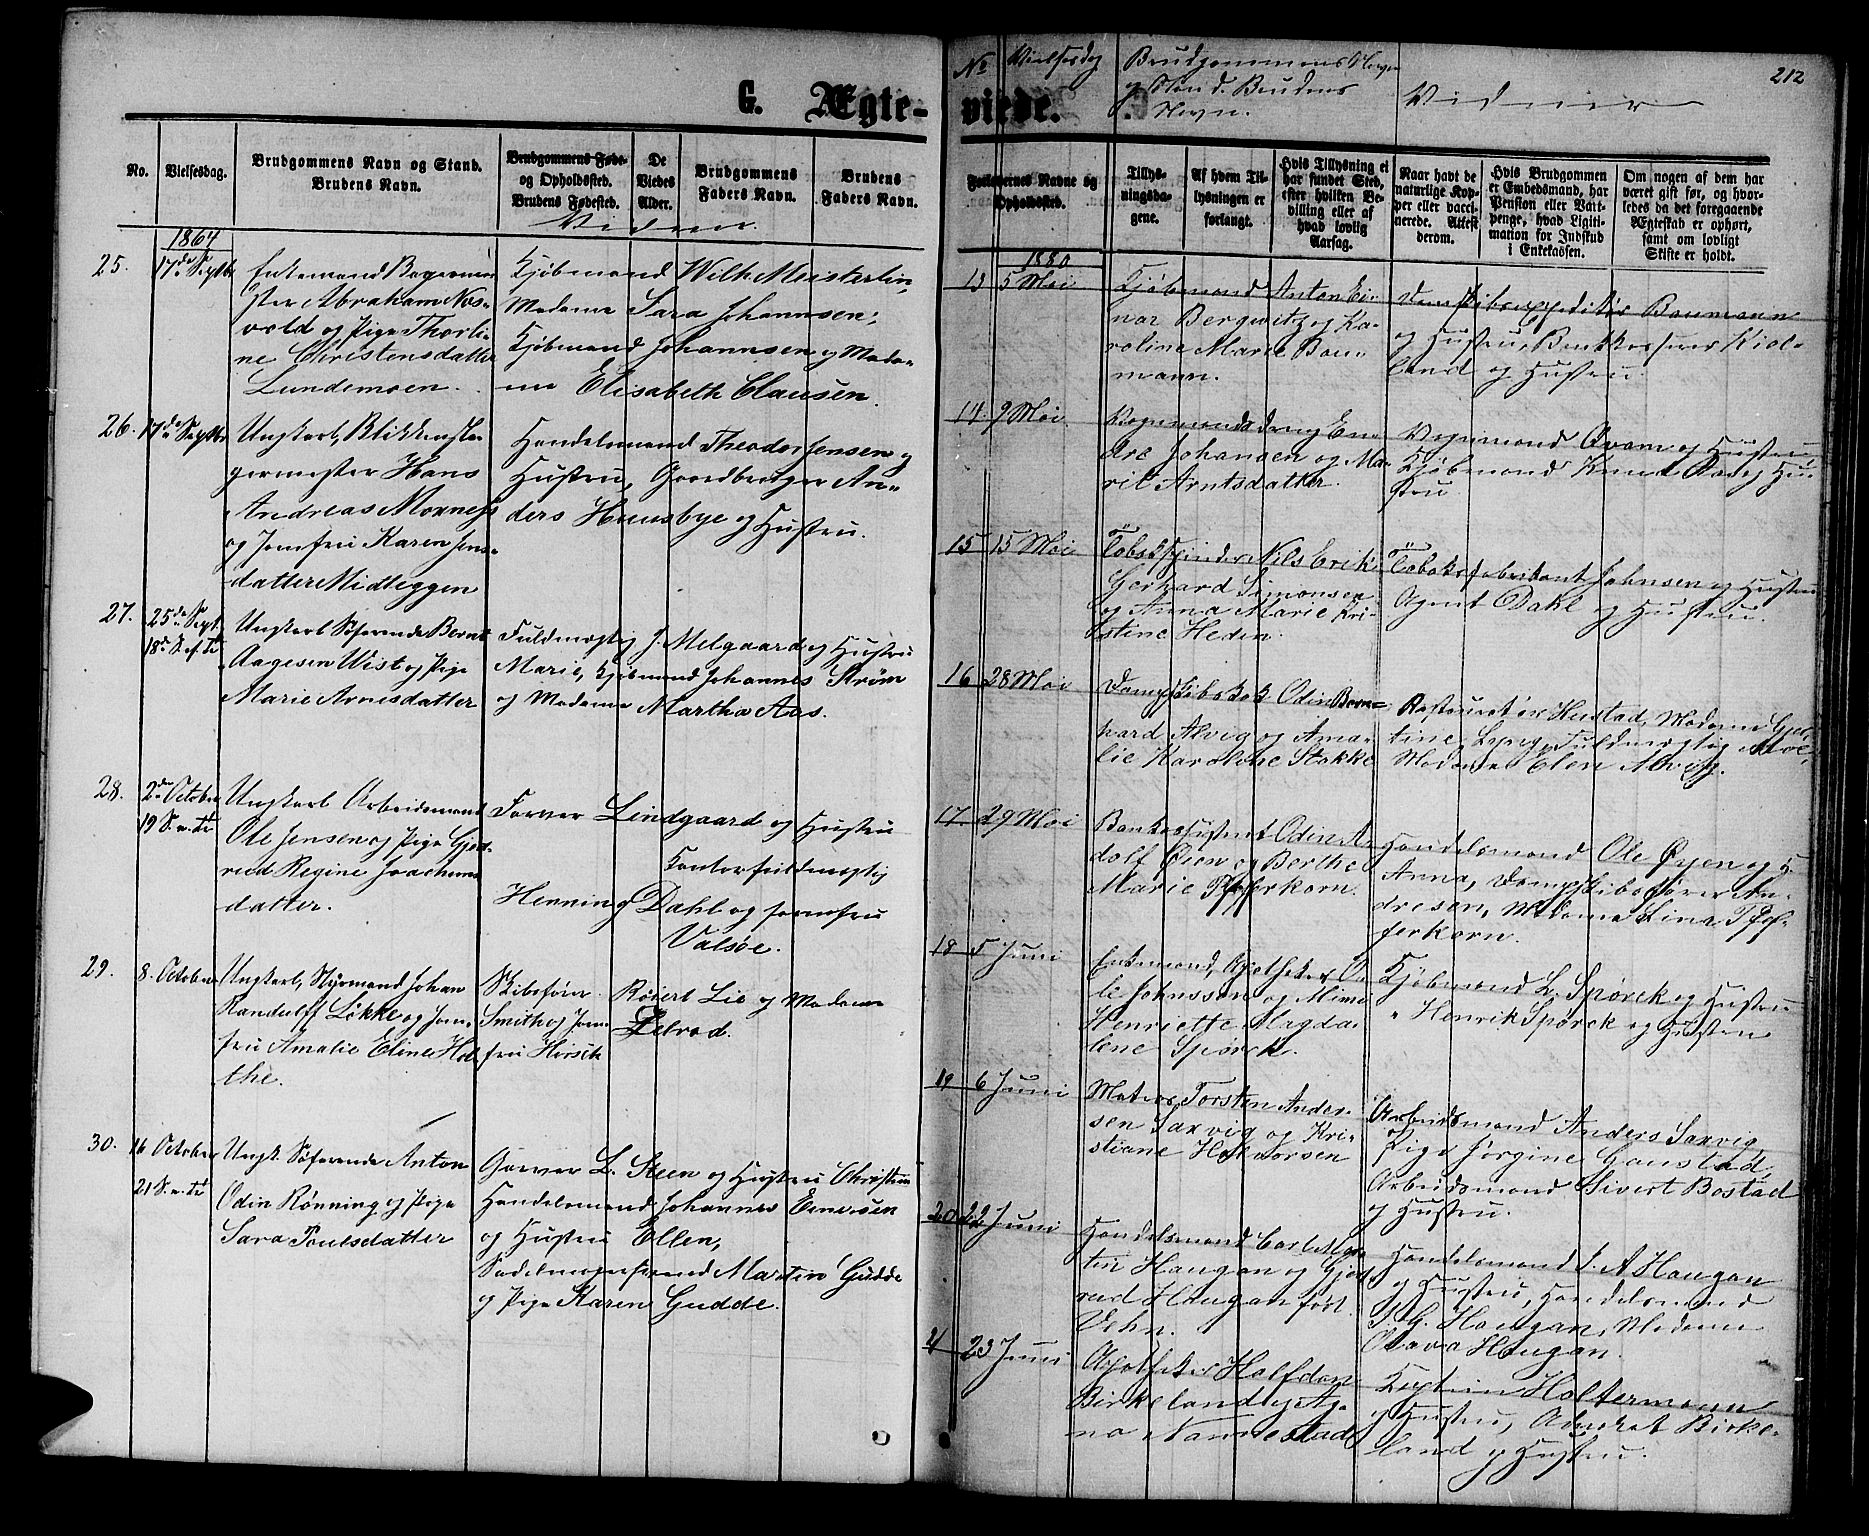 G. Ægte-
No.
Vielsesdag.
Brudgommens Navn og Stand.
Brudens Navn.
Brudgommens Føde-
og Opholdssted.
Brudens Fødested.
De
Viedes
Alder.
Brudgommens
Faders Navn.
Brudens
Faders Navn.
Vidner
1864
25. 17de Septbr
Enkemand Bagerme-
ster Abraham Nos-
vold og Pige Thorli-
ne Christensdatter
Lundemoen.
Kjøbmand Wilh. Meisterlin,
Madame Sara Johannsen,
Kjøbmand Johannsen og Mada-
me Elisabeth Clausen.
26. 17de Septbr
Ungkarl, Blikkensla-
germester Hans
Andreas Moxness
og Jomfru Karen Jens-
datter Midleggen
Handelsmand Theodor Jensen og
Hustru, Gaardbruger An-
ders Huusbye og Hustru.
27. 25de Sept.
18de S. ef. Tr.
Ungkarl Søfarende Bernt
Aagesen Wist og Pige
Marie Arnesdatter
Fuldmægtig J. Melgaard og Hustru
Marie, Kjøbmand Johannes Strøm
og Madame Martha Aas.
28. 2de October
19 S. e. Tr.
Ungkarl Arbeidsmand
Ole Jensen og Pige Gjer-
trud Regine Joachims-
datter.
Farver Lindgaard og Hustru
Contorfuldmægtig
Henning Dahl og Jomfru
Valsøe.
29. 8. October
Ungkarl, Styrmand Johan
Randulff Løkke og Jom-
fru Amalie Eline Hol-
the.
Skibsfører Røiert Lie og Madame
Smith og Jom- Lelrod.
fru Hirsch
30. 16 October
21 S. e. Tr.
Ungk. Søfarende Anton
Odin Rønning og Pige
Sara Poulsdatter
Garver L. Steen og Hustru Christine
Handelsmand Johannes Einersen
og Hustru Ellen,
Sadelmagersvend Martin Gudde
og Pige Karen Gudde.
viede.
212
No Vielsesdag
Brudgommens Navn
og Stand. Brudens
Navn.
Vidner
Forlovernes Navne og
Opholdssted.
Tillys-
ningsda-
gene.
Af hvem Til-
lysningen er
forlangt.
Hvis Tillysning ei
har fundet Sted,
efter hvilken Be-
villing eller af
hvad lovlig
Aarsag.
Naar havt de
naturlige Kop-
per eller vacci-
nerede. Attest
derom.
Hvis Brudgommen
er Embedsmand, har
Pension eller Vart-
penge, hvad Ligiti-
mation for Indskud
i Enkekassen.
Om nogen af dem har
været gift før, og hvor-
ledes da det foregaaende
Ægteskab er ophørt,
samt om lovligt
Skifte er holdt.
1880
13 5 Mai
Kjøbmand Anton Ei-
nar Bergwitz og Ka-
roline Marie Bau-
mann.
Dampskibsexpeditør Baumann
og Hustru, Bankkasserer Kiel-
land og Hustru.
14. 9 Mai
Vognmandsdreng
Johansen og Ma-
rit Arntsdatter.
Vognmand Qvam og Hustru,
Kjøbmand Knud og Hu-
stru
15 15 Mai
Tobakspinder Nils Erik
Gerhard Simonsen
og Anna Marie Kri-
stine Hedin.
Tobaksfabrikant Johnsen og Hustru
Agent Dahl og Hustru.
16 28 Mai
Dampskibskok Odin Bern-
hard Alvig og Ama-
lie Karoline Stokke
Restauratør Hustad, Madame
Fuldmægtig Moe,
Madame Elen Alvig.
17. 29 Mai
Bankassistent Odin A-
dolf Øien og Berthe
Marie Pfefferkorn.
Handelsmand Ole Øyen og H.
Anna, Dampskibsfører An-
dresen, Madame Lina Pfef-
ferkorn.
18 5 Juni
Enkemand, Apotheker O-
le Johnssen og Mimi
Henriette Magda-
lene Spørck.
Kjøbmand L. Spørck og Hustru
" Henrik Spørck og Hustru
19 6 Juni
Matros Torsten Ander-
sen Saxvig og Kri-
stiane Halvorsen
Arbeidsmand Anders Saxvig
og
Pige Jørgine Gaustad,
Arbeidsmand Sivert Bostad
og Hustru.
20 22 Juni
Handelsmand Carl Mar-
tin Haugan og Gjer-
trud Haugan født
Vehn.
Handelsmand J. A Haugan
og Hustru, Handelsmand
P. G. Haugan, Madame
Olava Haugan.
21 23 Juni
Apotheker Halfdan
Birkeland og Ag-
na Nannestad
Kaptein Holtermann
og Hustru, Advokat Birke-
land og Hustru.